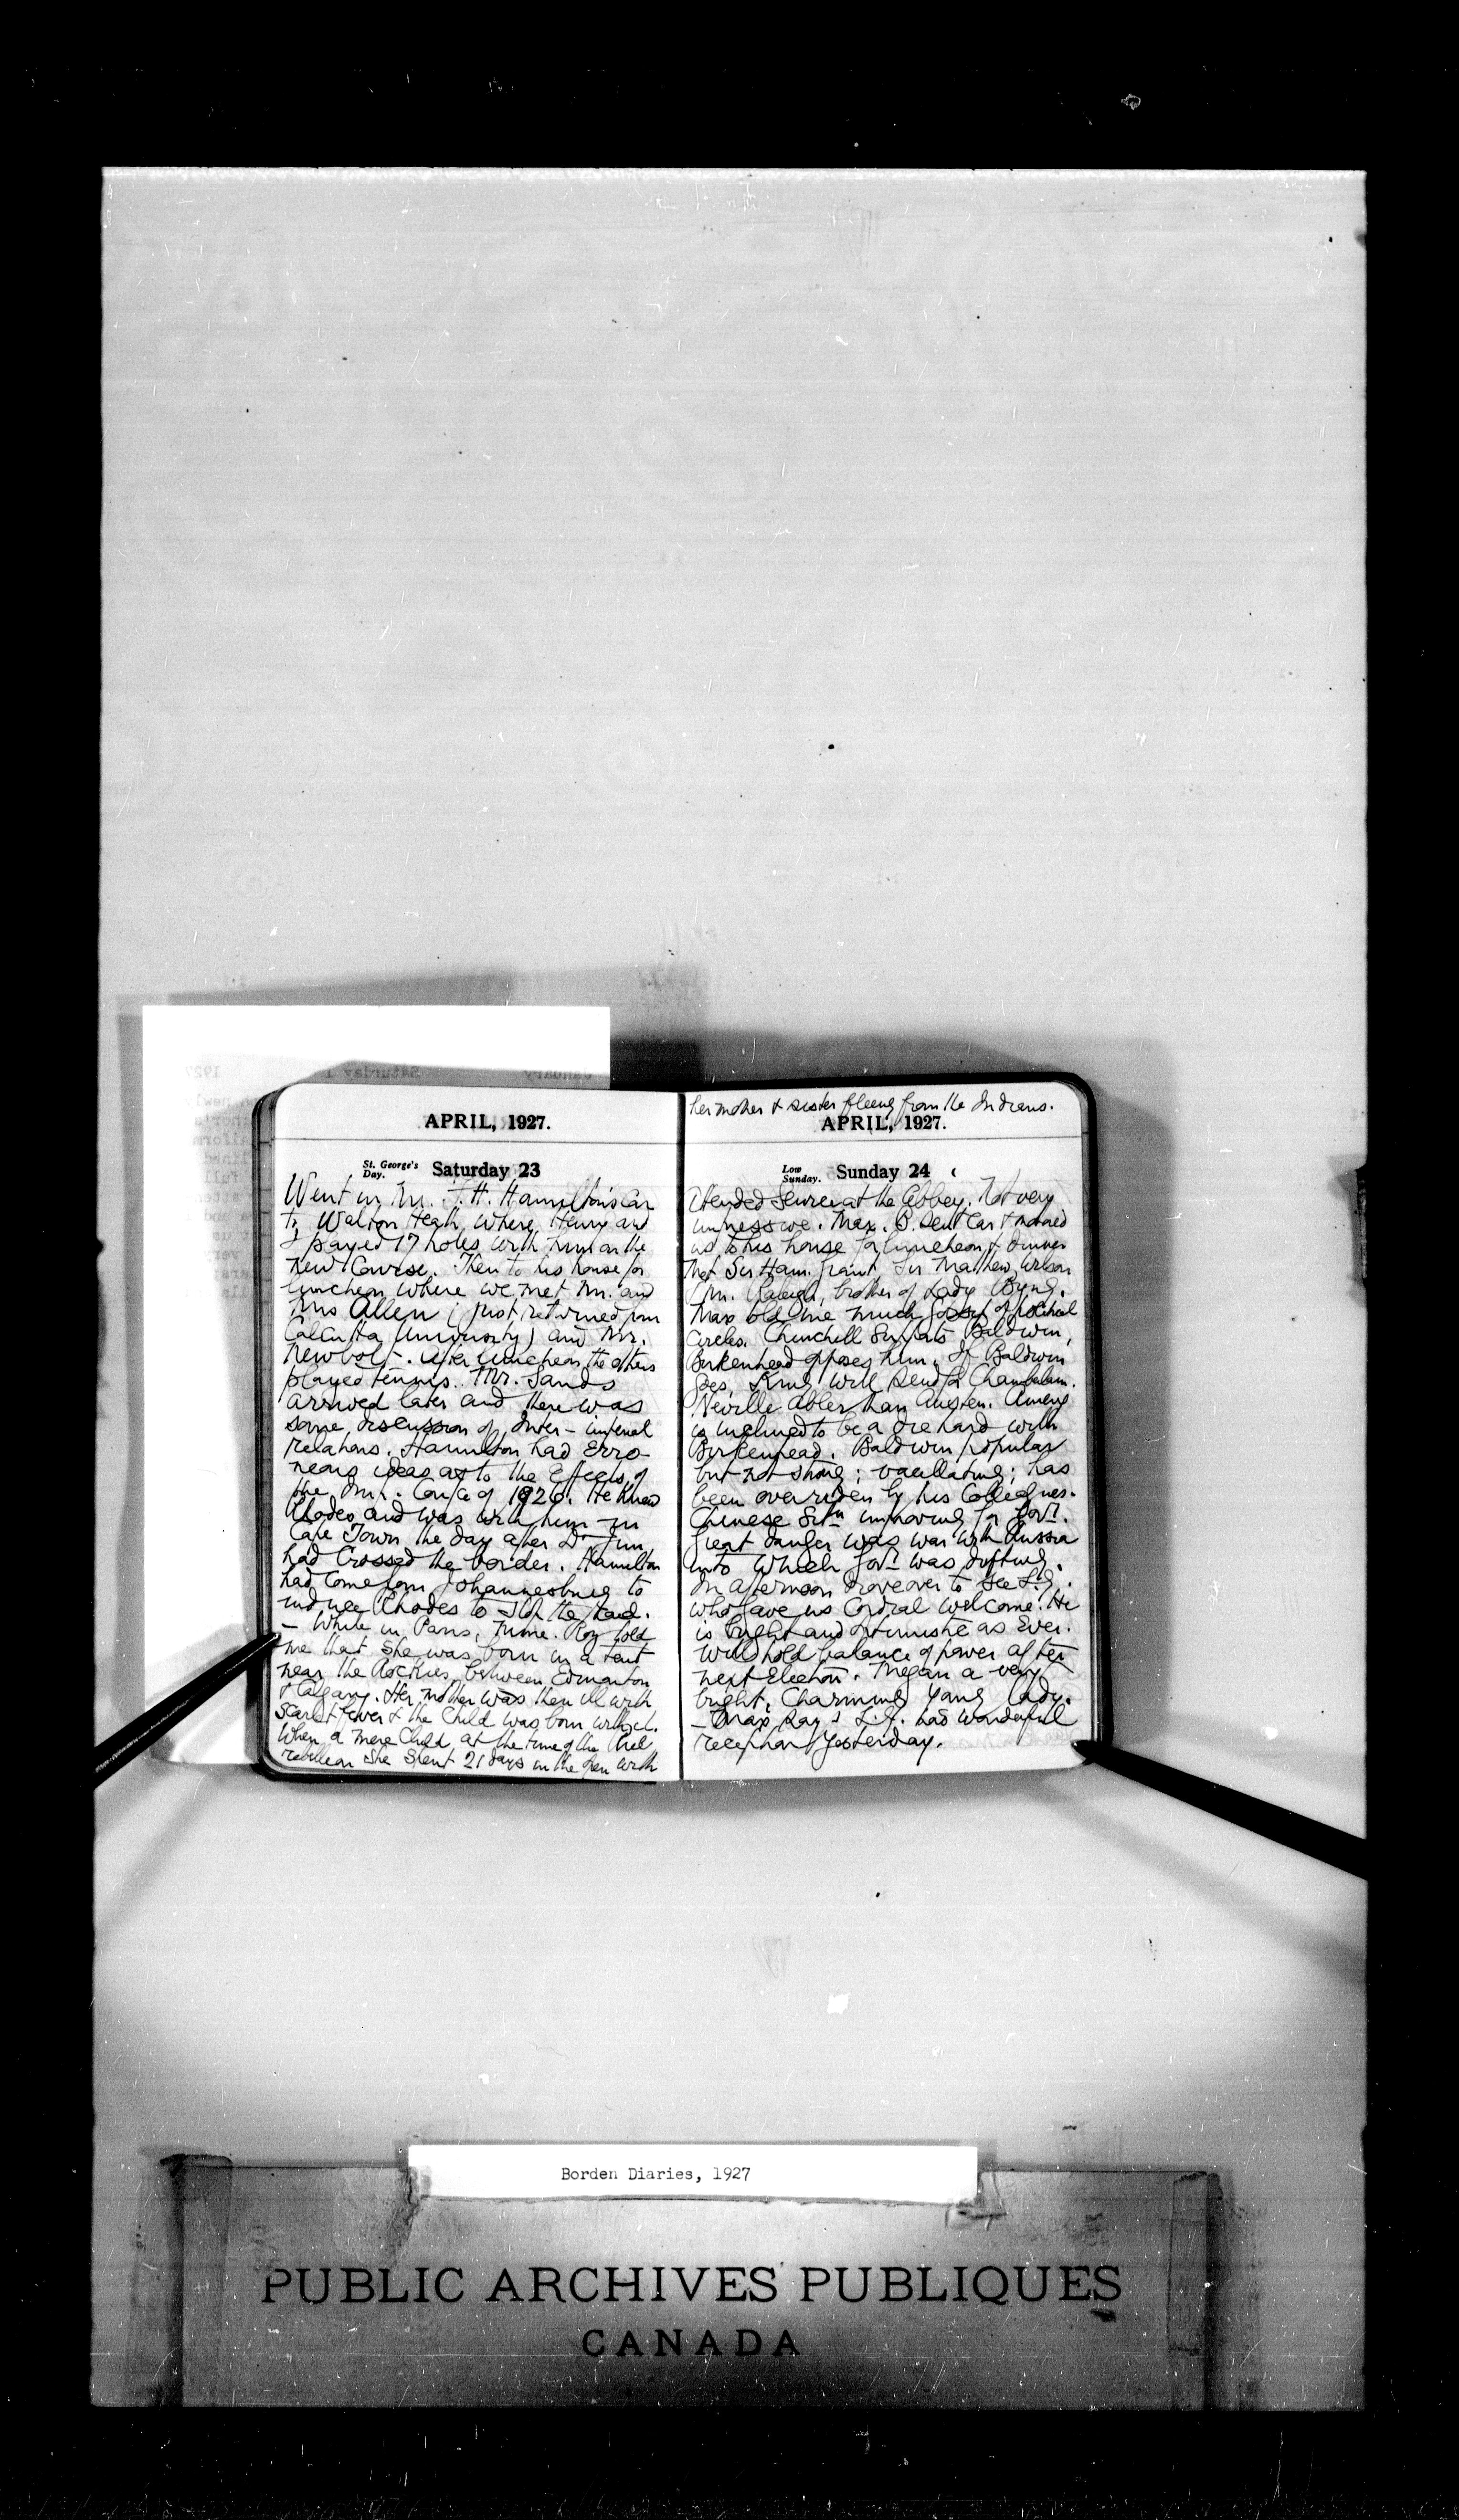 APRIL, 1927.
St. George's Day. Saturday 23
Went in Mr. F. H. Hamilton's car
to Walton Heath where Henry and
I played 17 holes with him on the
new Course. Then to his house for
luncheon where we met Mr. and
Mrs Allen (just returned from
Calcutta University) and Mr.
Newbolt. After luncheon the others
played tennis. Mr. Sands
arrived later and there was
some discussion of Inter-imperial
relations. Hamilton had erro-
neous ideas as to the effects of
the Imp. Conf. of 1926. He knew
Rhodes and was with him in
Cape Town the day after Dr Jim
had crossed the border. Hamilton
had come from Johannesburg to
induce Rhodes to stop the Raid.
- While in Paris, Mme. Roy told
me that she was born in a tent
near the Rockies between Edmonton
& Calgary. Her mother was then ill with
Scarlet fever & the child was born with it.
When a mere child, at the time of the Riel
rebellion she spent 21 days in the open with
her mother & sister fleeing from the Indians.
APRIL, 1927.
Low Sunday. Sunday 24
Attended Service at the Abbey. Not very
impressive. Max. B. sent car & motored
us to his house for luncheon & dinner
Met Sir Ham. Grant Sir Mathew Wilson
Mr. Raleigh, brother of Lady Byng.
Max told me much gossip of political
circles. Churchill supports Baldwin,
Birkenhead opposes him. If Baldwin
goes, King will send for Chamberlain.
Neville abler than Austen. Amery
is inclined to be a die hard with
Birkenhead. Baldwin popular
but not strong; vacillating; has
been overriden by his Colleagues.
Chinese Sitn improving for Govt.
Great danger was war with Russia
into which Govt was drifting.
In afternoon drove over to see L.G.
who gave us cordial welcome. He
is bright and optimistic as ever.
Will hold balance of power after
next Election. Megan a very
bright, charming young lady.
- Max says L.G. had wonderful
reception yesterday.
Borden Diaries, 1927
PUBLIC ARCHIVES PUBLIQUES
CANADA